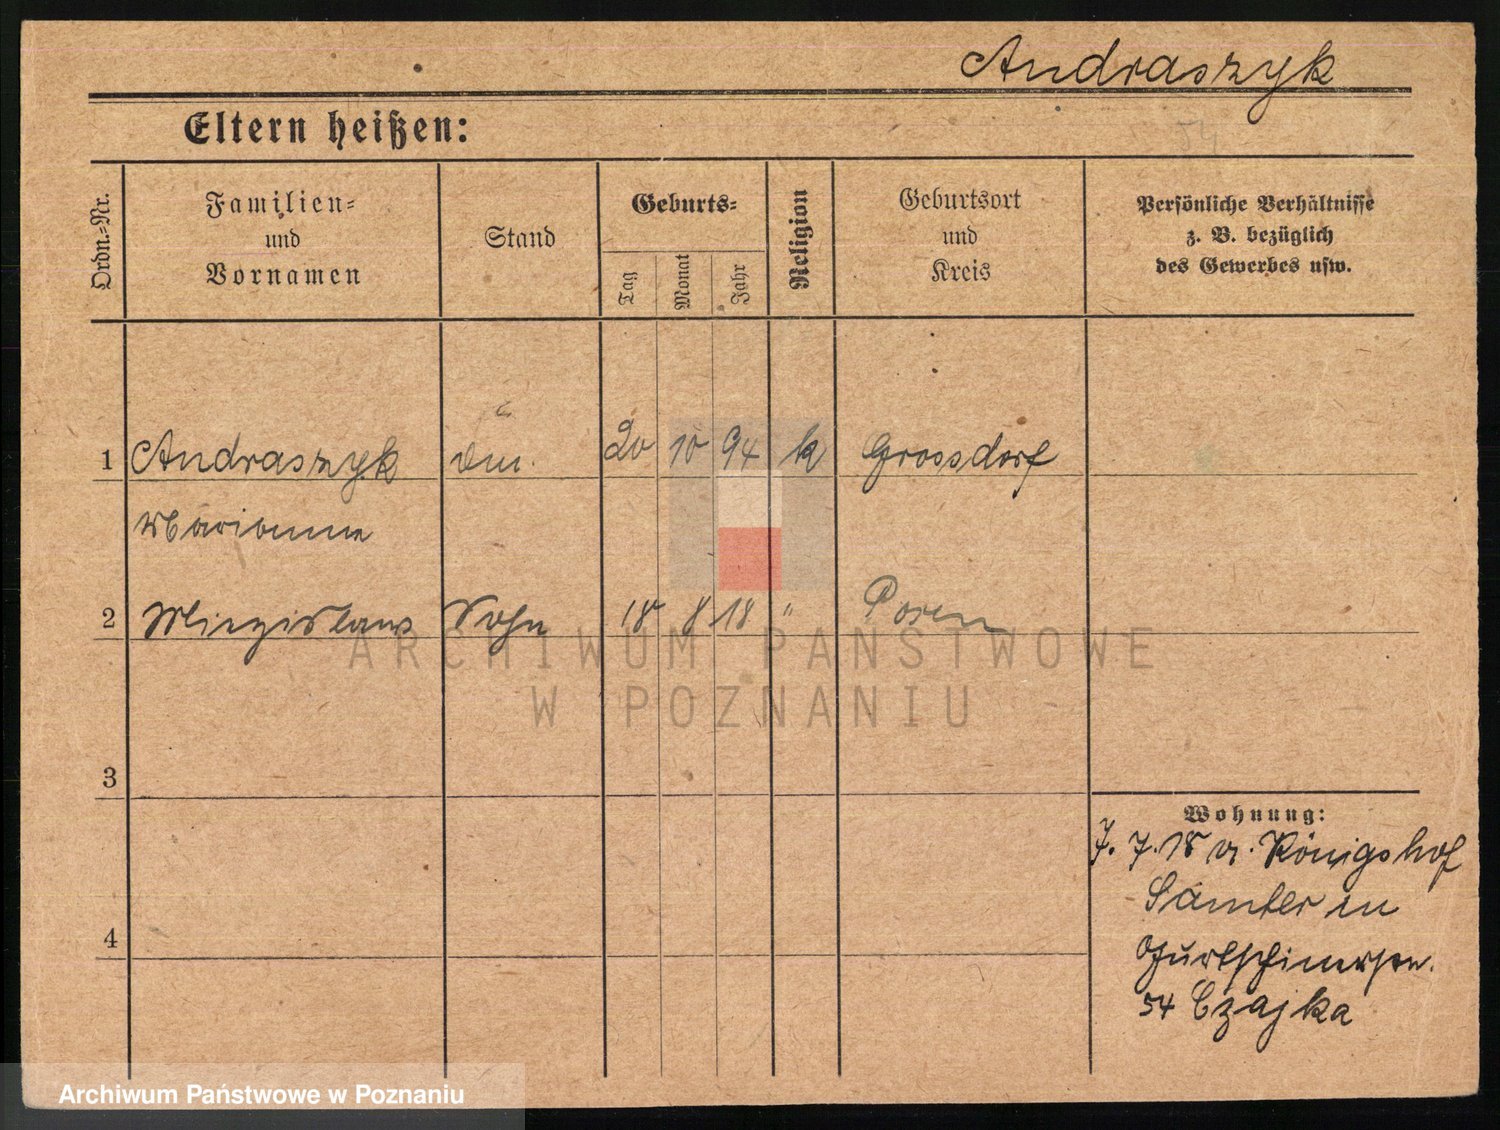 Andraszyk
Eltern heißen:
54
Ordn.-Nr.
Familien-
und
Vornamen
Stand
Geburts-
Tag
Monat
Jahr
Religion
Geburtsort
und
Kreis
Persönliche Verhältnisse
z. B. bezüglich
des Gewerbes usw.
1 Andraszyk 20 10 94 k Grossdorf
Marianne
2 Miezislaus Sohn 18 8 18 " Posen
ARCHIWUM PAŃSTWOWE
W POZNANIU
3
Wohnung:
7. 7. 18 v. Königshof
Samter in
4
54 Czajka
Archiwum Państwowe w Poznaniu